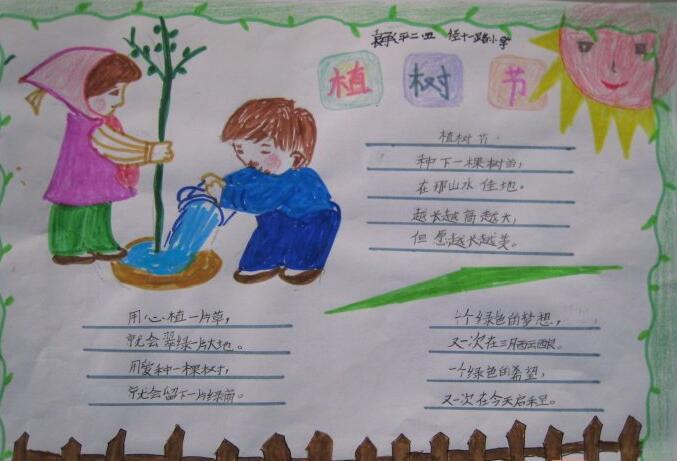 二四 经十一路小学
植树节
植树节
种下一棵树苗,
在那山水佳地。
越长越高越大,
但愿越长越美。
用心植一片草,
就会翠绿一片大地。
用爱种一棵树,
就会留下一片绿荫。
一个绿色的梦想,
又一次在三月酝酿。
一个绿色的希望,
又一次在今天启程。